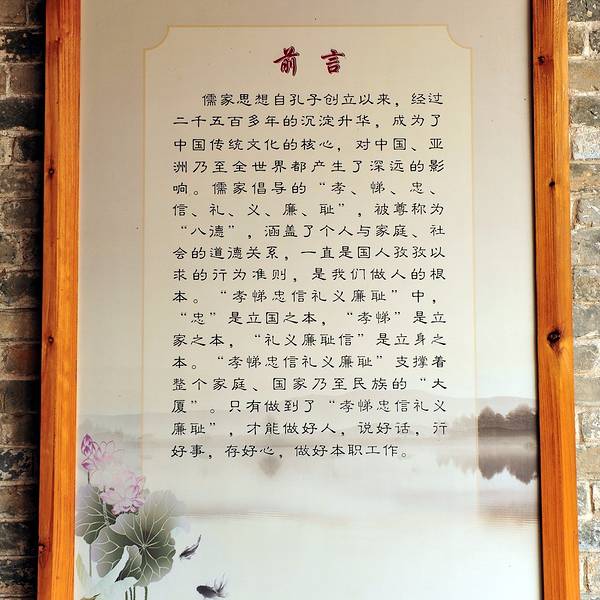 前言
儒家思想自孔子创立以来，经过
二千五百多年的沉淀升华，成为了
中国传统文化的核心，对中国、亚
洲乃至全世界都产生了深远的影
响。儒家倡导的“孝、悌、忠、
信、礼、义、廉、耻”，被尊称为
“八德”，涵盖了个人与家庭、社
会的道德关系，一直是国人孜孜以
求的行为准则，是我们做人的根
本。“孝悌忠信礼义廉耻”中，
“忠”是立国之本，“孝悌”是立
家之本，“礼义廉耻信”是立身之
本。“孝悌忠信礼义廉耻”支撑着
整个家庭、国家乃至民族的“大
厦”。只有做到了“孝悌忠信礼义
廉耻”，才能做好人，说好话，行
好事，存好心，做好本职工作。